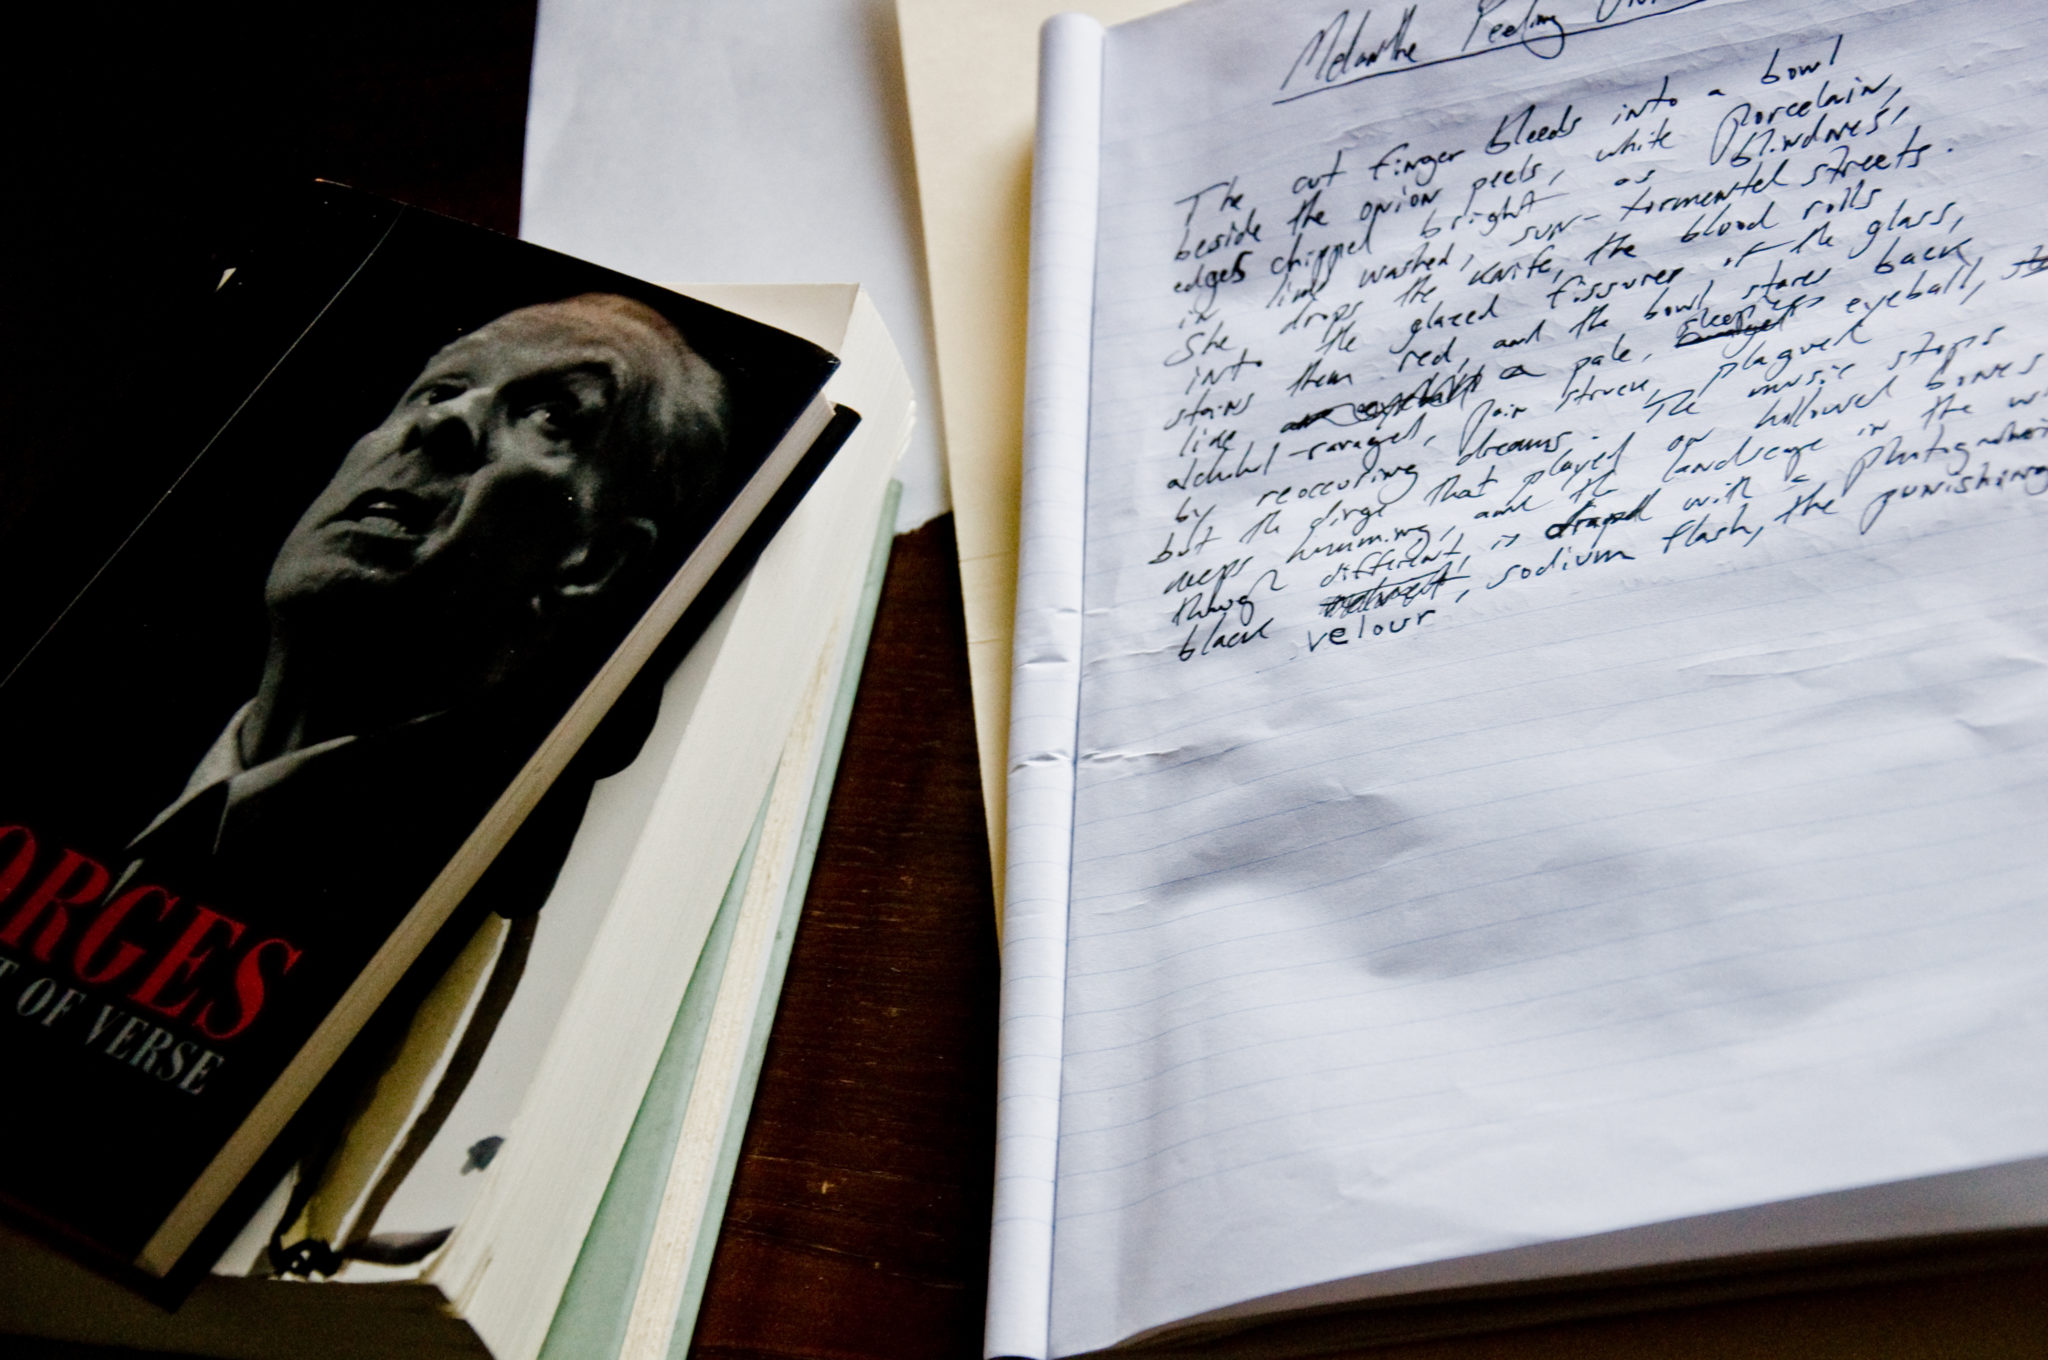 ORGES
T OF VERSE
Melanthe Peeling
The cut finger bleeds into a bowl
beside the onion peels, white porcelain,
edges chipped bright as blindness,
in lime washed, sun-tormented streets.
She drops the knife, the blood rolls
into the glazed fissures of the glass,
stains them red, and the bowl stares back
like a pale, sleepless eyeball,
alchohol-ravaged, pain struck, plagued
by reoccuring dreams. The music stops
but the dirge that played on hollowed bones
keeps humming, and the landscape in the
though different, is draped with a photographer's
black velour, sodium flash, the punishing